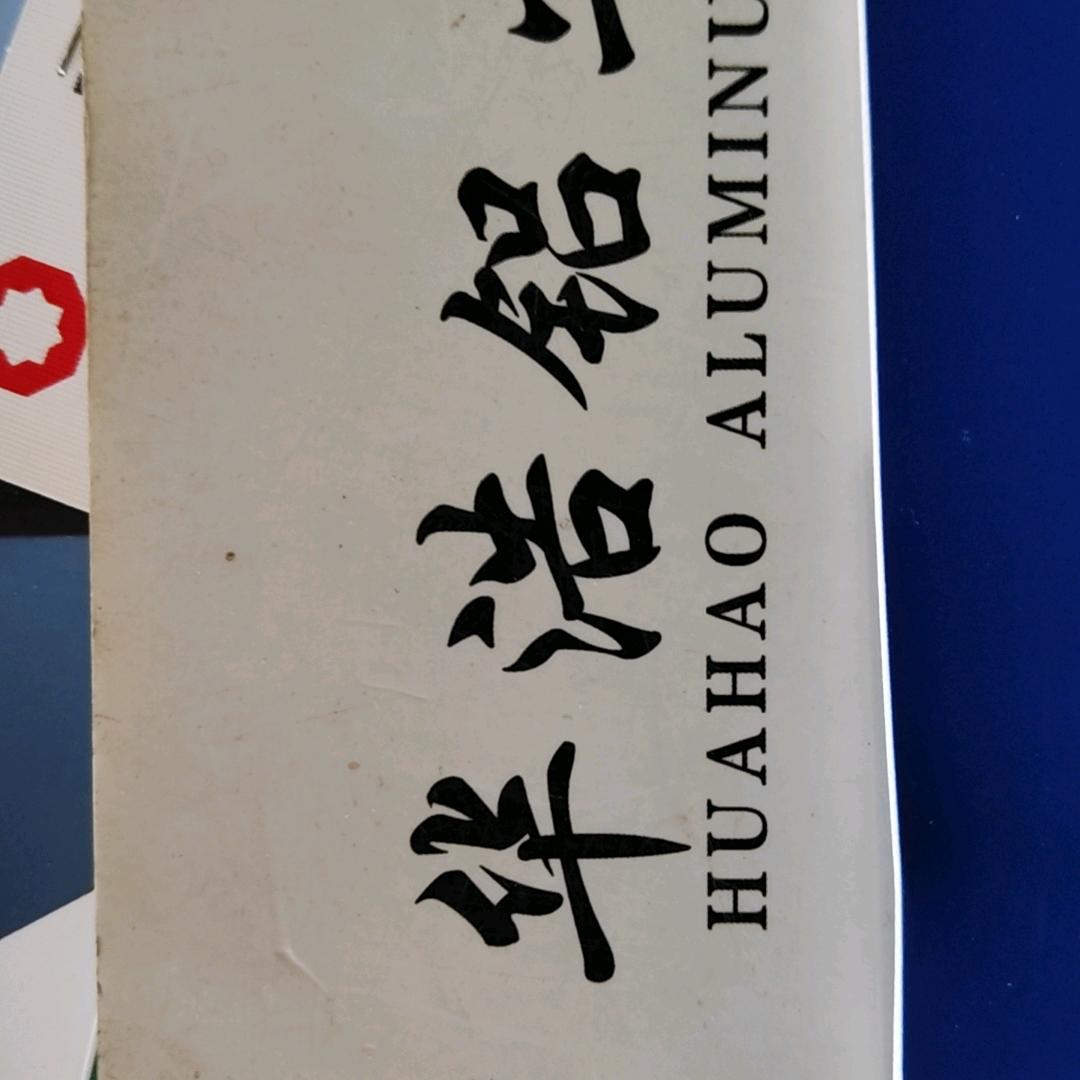 华浩铝
HUAHAO ALUMINU